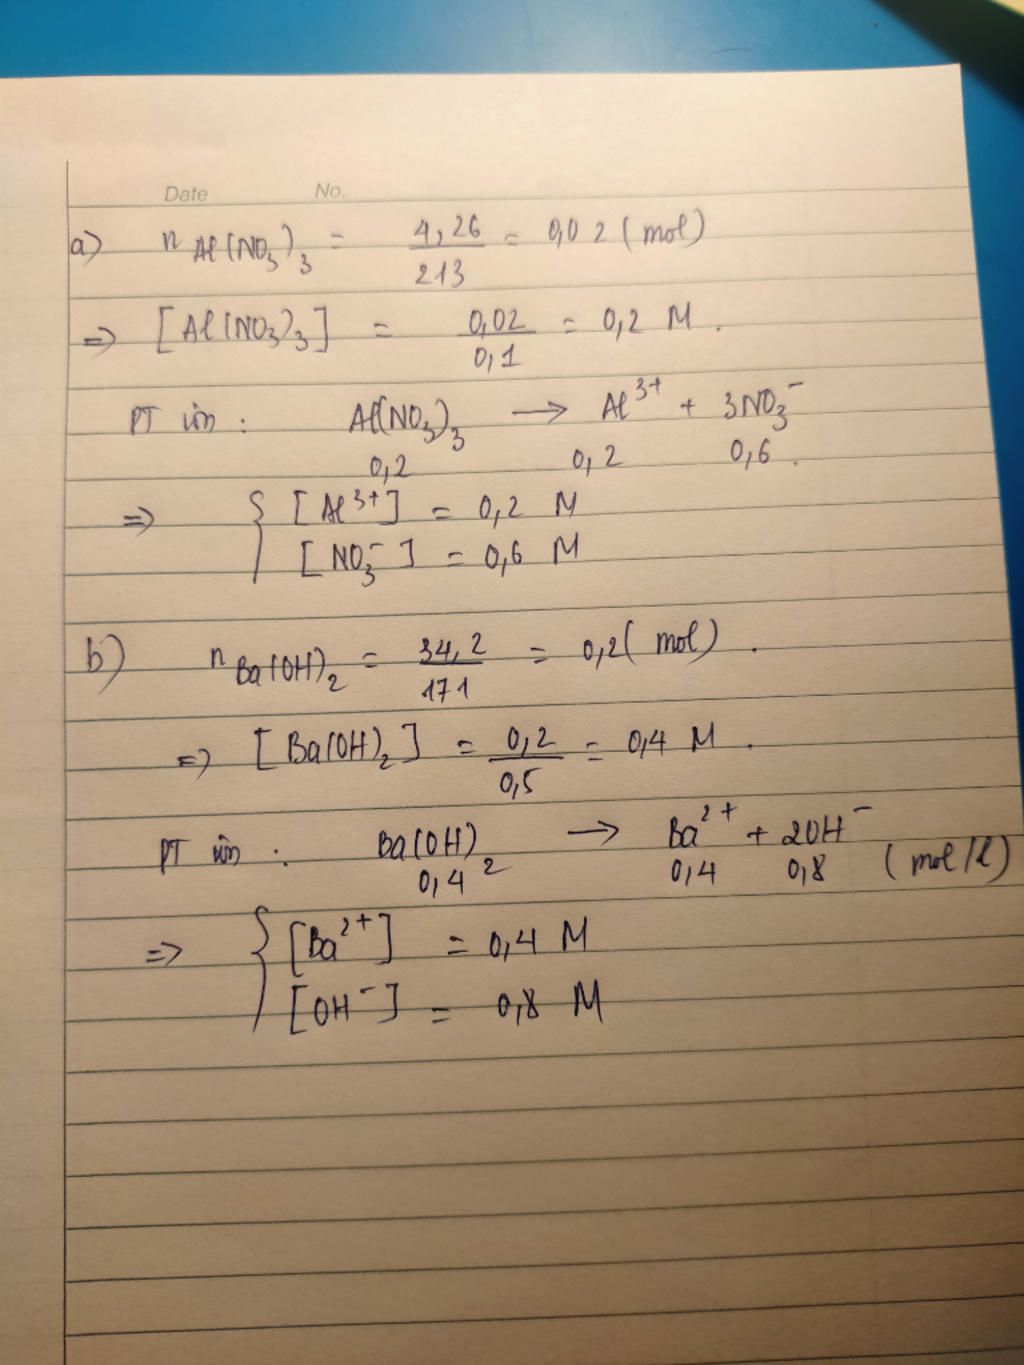 Date No.
a) n Al(NO3)3 = 4,26 / 213 = 0,02 (mol)
=> [Al(NO3)3] = 0,02 / 0,1 = 0,2 M.
PT ion : Al(NO3)3 → Al3+ + 3NO3-
0,2 0,2 0,6.
=> { [Al3+] = 0,2 M
[NO3-] = 0,6 M
b) n Ba(OH)2 = 34,2 / 171 = 0,2 (mol).
=> [Ba(OH)2] = 0,2 / 0,5 = 0,4 M.
PT ion : Ba(OH)2 → Ba2+ + 2OH-
0,4 0,4 0,8 (mol/l)
=> { [Ba2+] = 0,4 M
[OH-] = 0,8 M